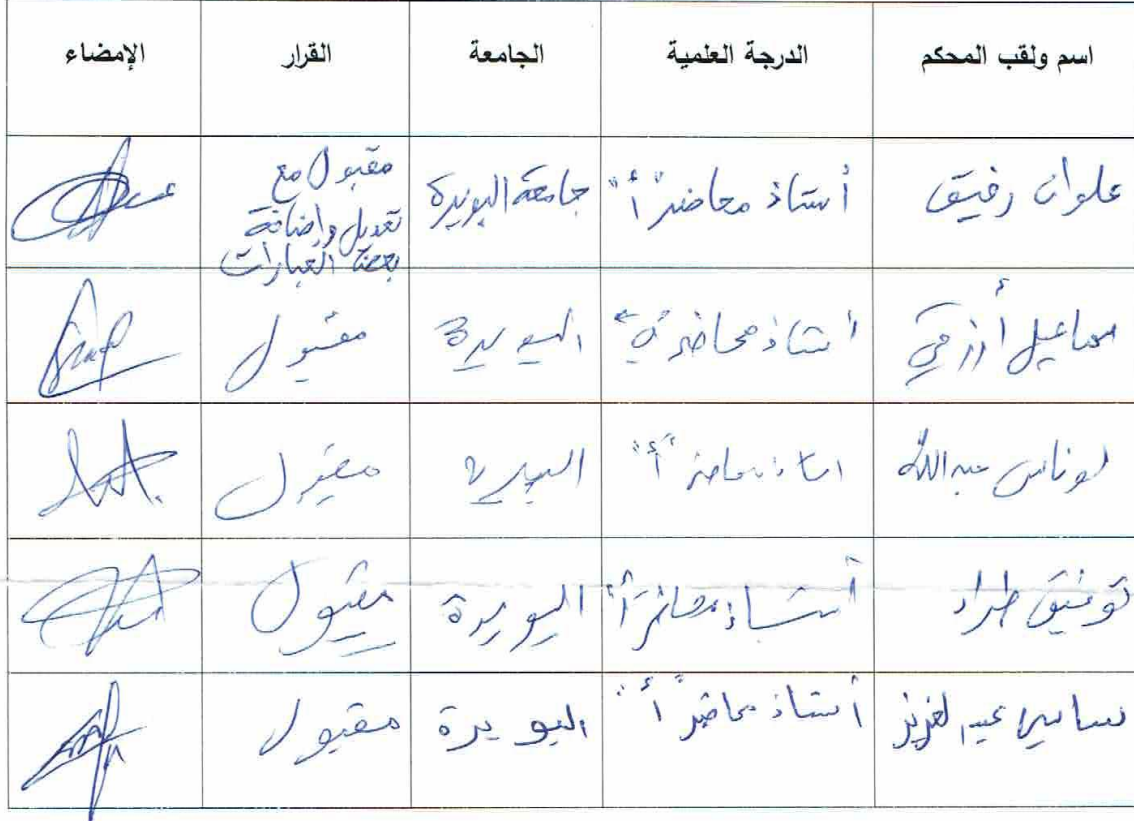 اسم ولقب المحكم الدرجة العلمية الجامعة القرار الإمضاء
علوان رفيق أستاذ محاضر "أ" جامعة البويرة مقبول مع
تعديل وإضافة
بعض العبارات
أرزقي أستاذ محاضر البويرة مقبول
لوناس عبدالله استاذ محاضر "أ" البويرة مقبول
توفيق طراد أستاذ محاضر "أ" البويرة مقبول
عبد العزيز أستاذ محاضر "أ" البويرة مقبول